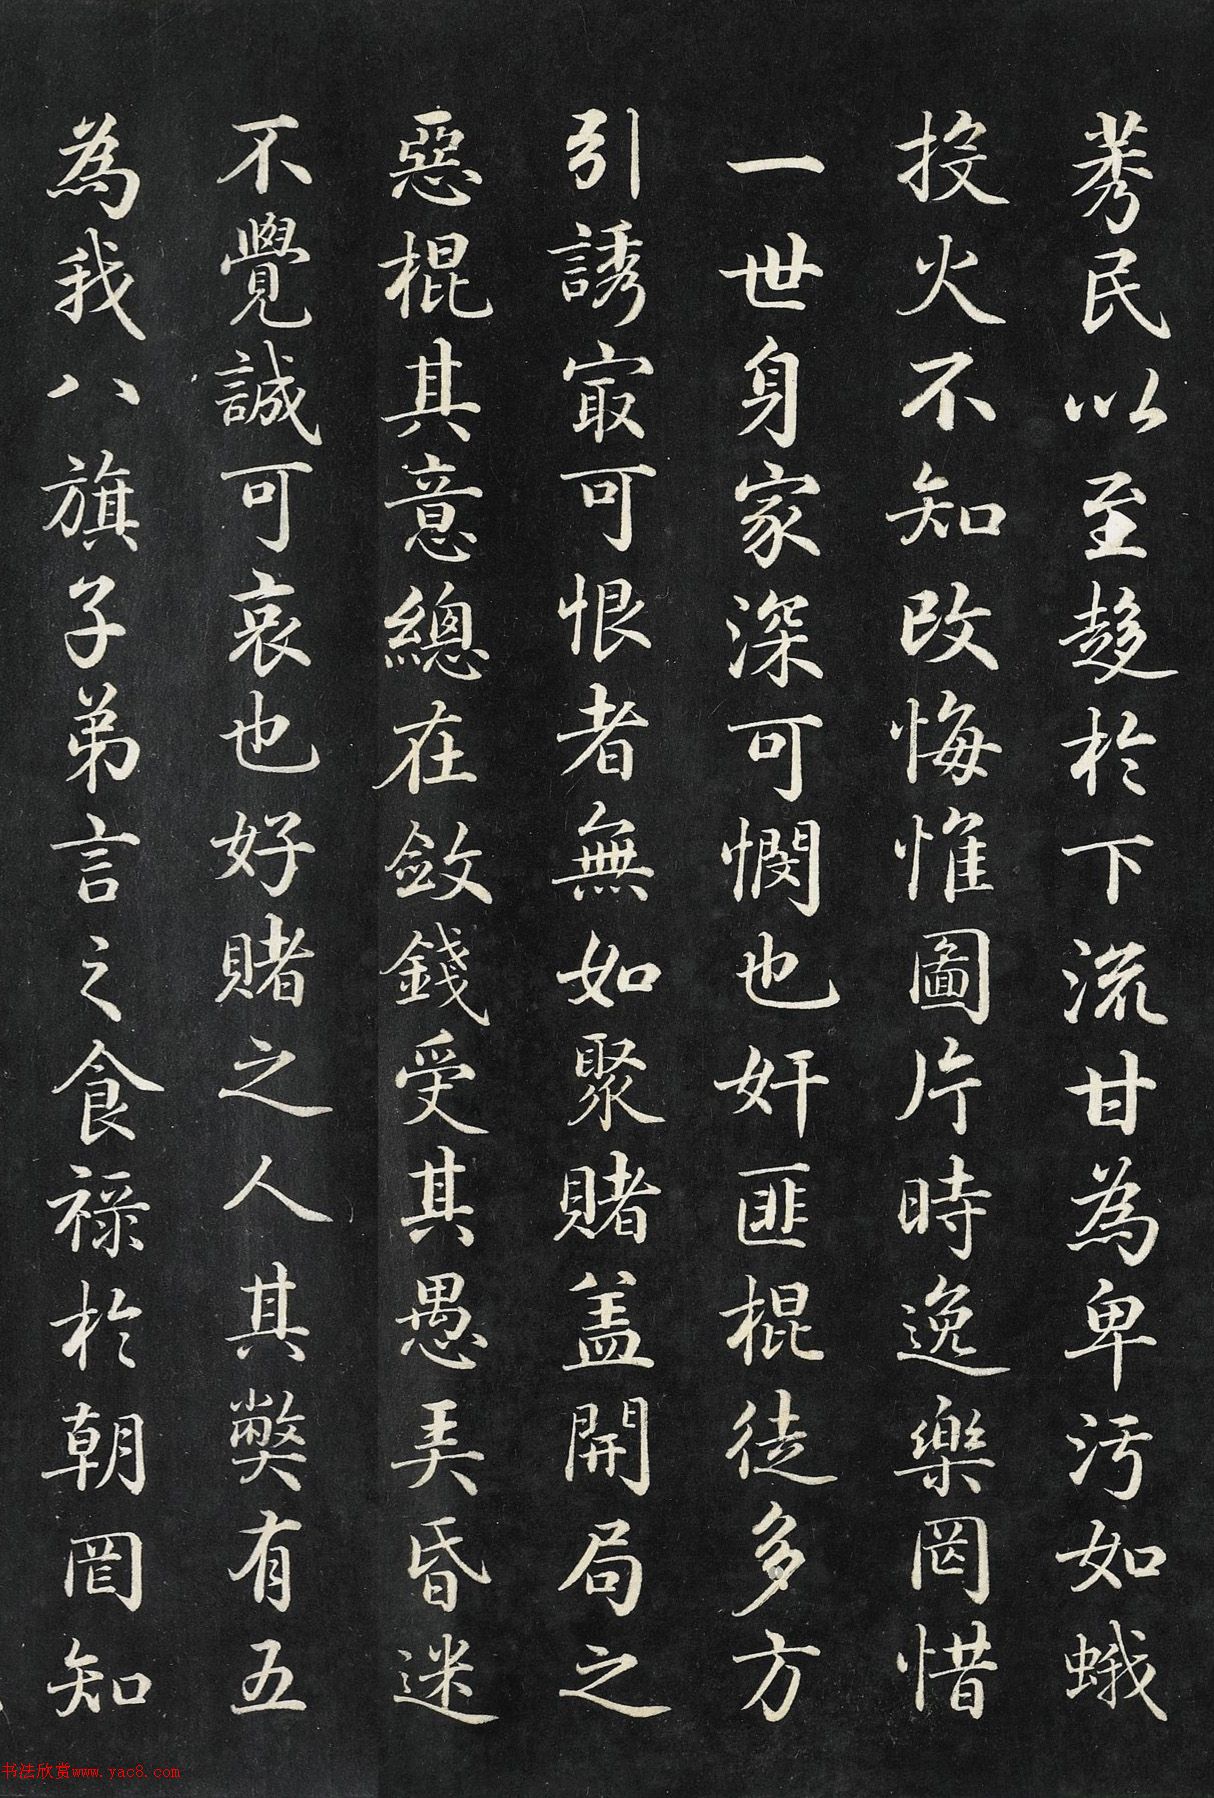 莠民以至趍於下流甘為卑污如蛾
投火不知改悔惟圖片時逸樂罔惜
一世身家深可憫也奸匪棍徒多方
引誘冣可恨者無如聚賭盖開局之
惡棍其意總在斂錢受其愚美昏迷
不覺誠可哀也好賭之人其獘有五
為我八旗子弟言之食祿於朝罔知
书法欣赏www.yac8.com